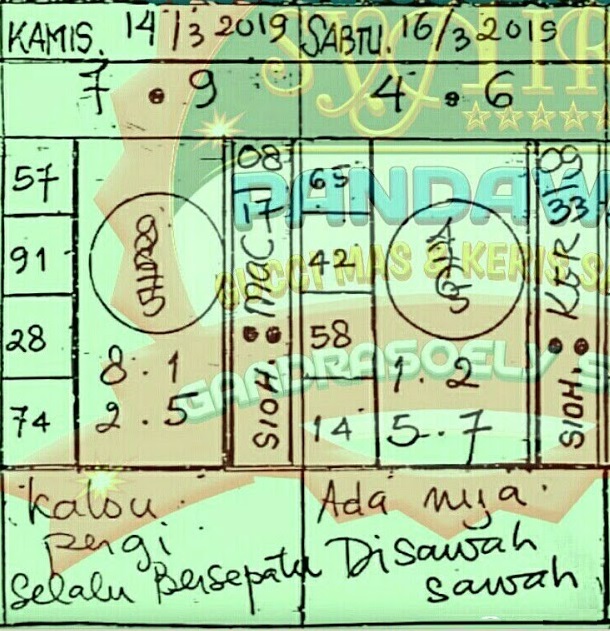 KAMIS. 14/3 2019
7 . 9
57
91
28
74
8 . 1
2 . 5
08
17
SIOH. : MAC
Kalou
pergi
Selalu Bersepatu
SABTU. 16/3 2019
4 . 6
65
42
58
14
1 . 2
5 . 7
09
33
SIOH. :
Ada nya
Disawah
sawah
PANDAW
GUCCI MAS & KERIS S
GANDRASOELY S